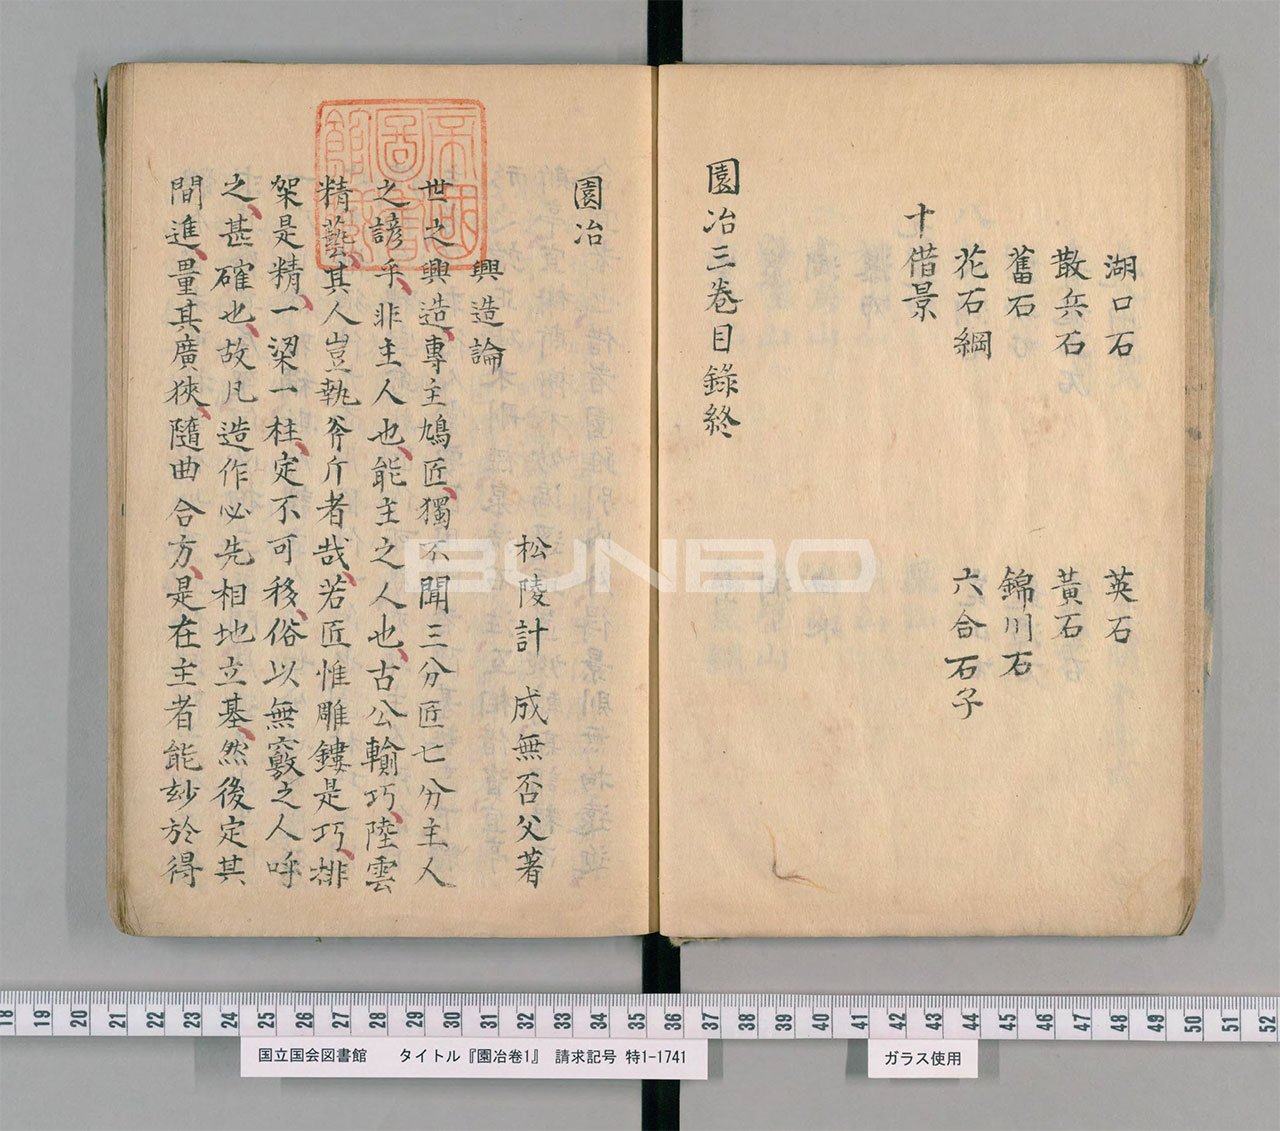 湖口石 英石
散兵石 黃石
舊石 錦川石
花石綱 六合石子
十借景
園冶三卷目錄終
園冶
松陵計 成無否父著
興造論
世之興造、專主鳩匠、獨不聞三分匠七分主人
之諺乎、非主人也、能主之人也、古公輸巧、陸雲
精藝、其人豈執斧斤者哉、若匠惟雕鏤是巧、排
架是精、一梁一柱、定不可移、俗以無竅之人呼
之、甚確也、故凡造作必先相地立基、然後定其
間進、量其廣狹、隨曲合方、是在主者能妙於得
帝國圖書館藏
BUNBO
18 19 20 21 22 23 24 25 26 27 28 29 30 31 32 33 34 35 36 37 38 39 40 41 42 43 44 45 46 47 48 49 50 51 52
国立国会図書館 タイトル『園冶巻1』 請求記号 特1-1741
ガラス使用